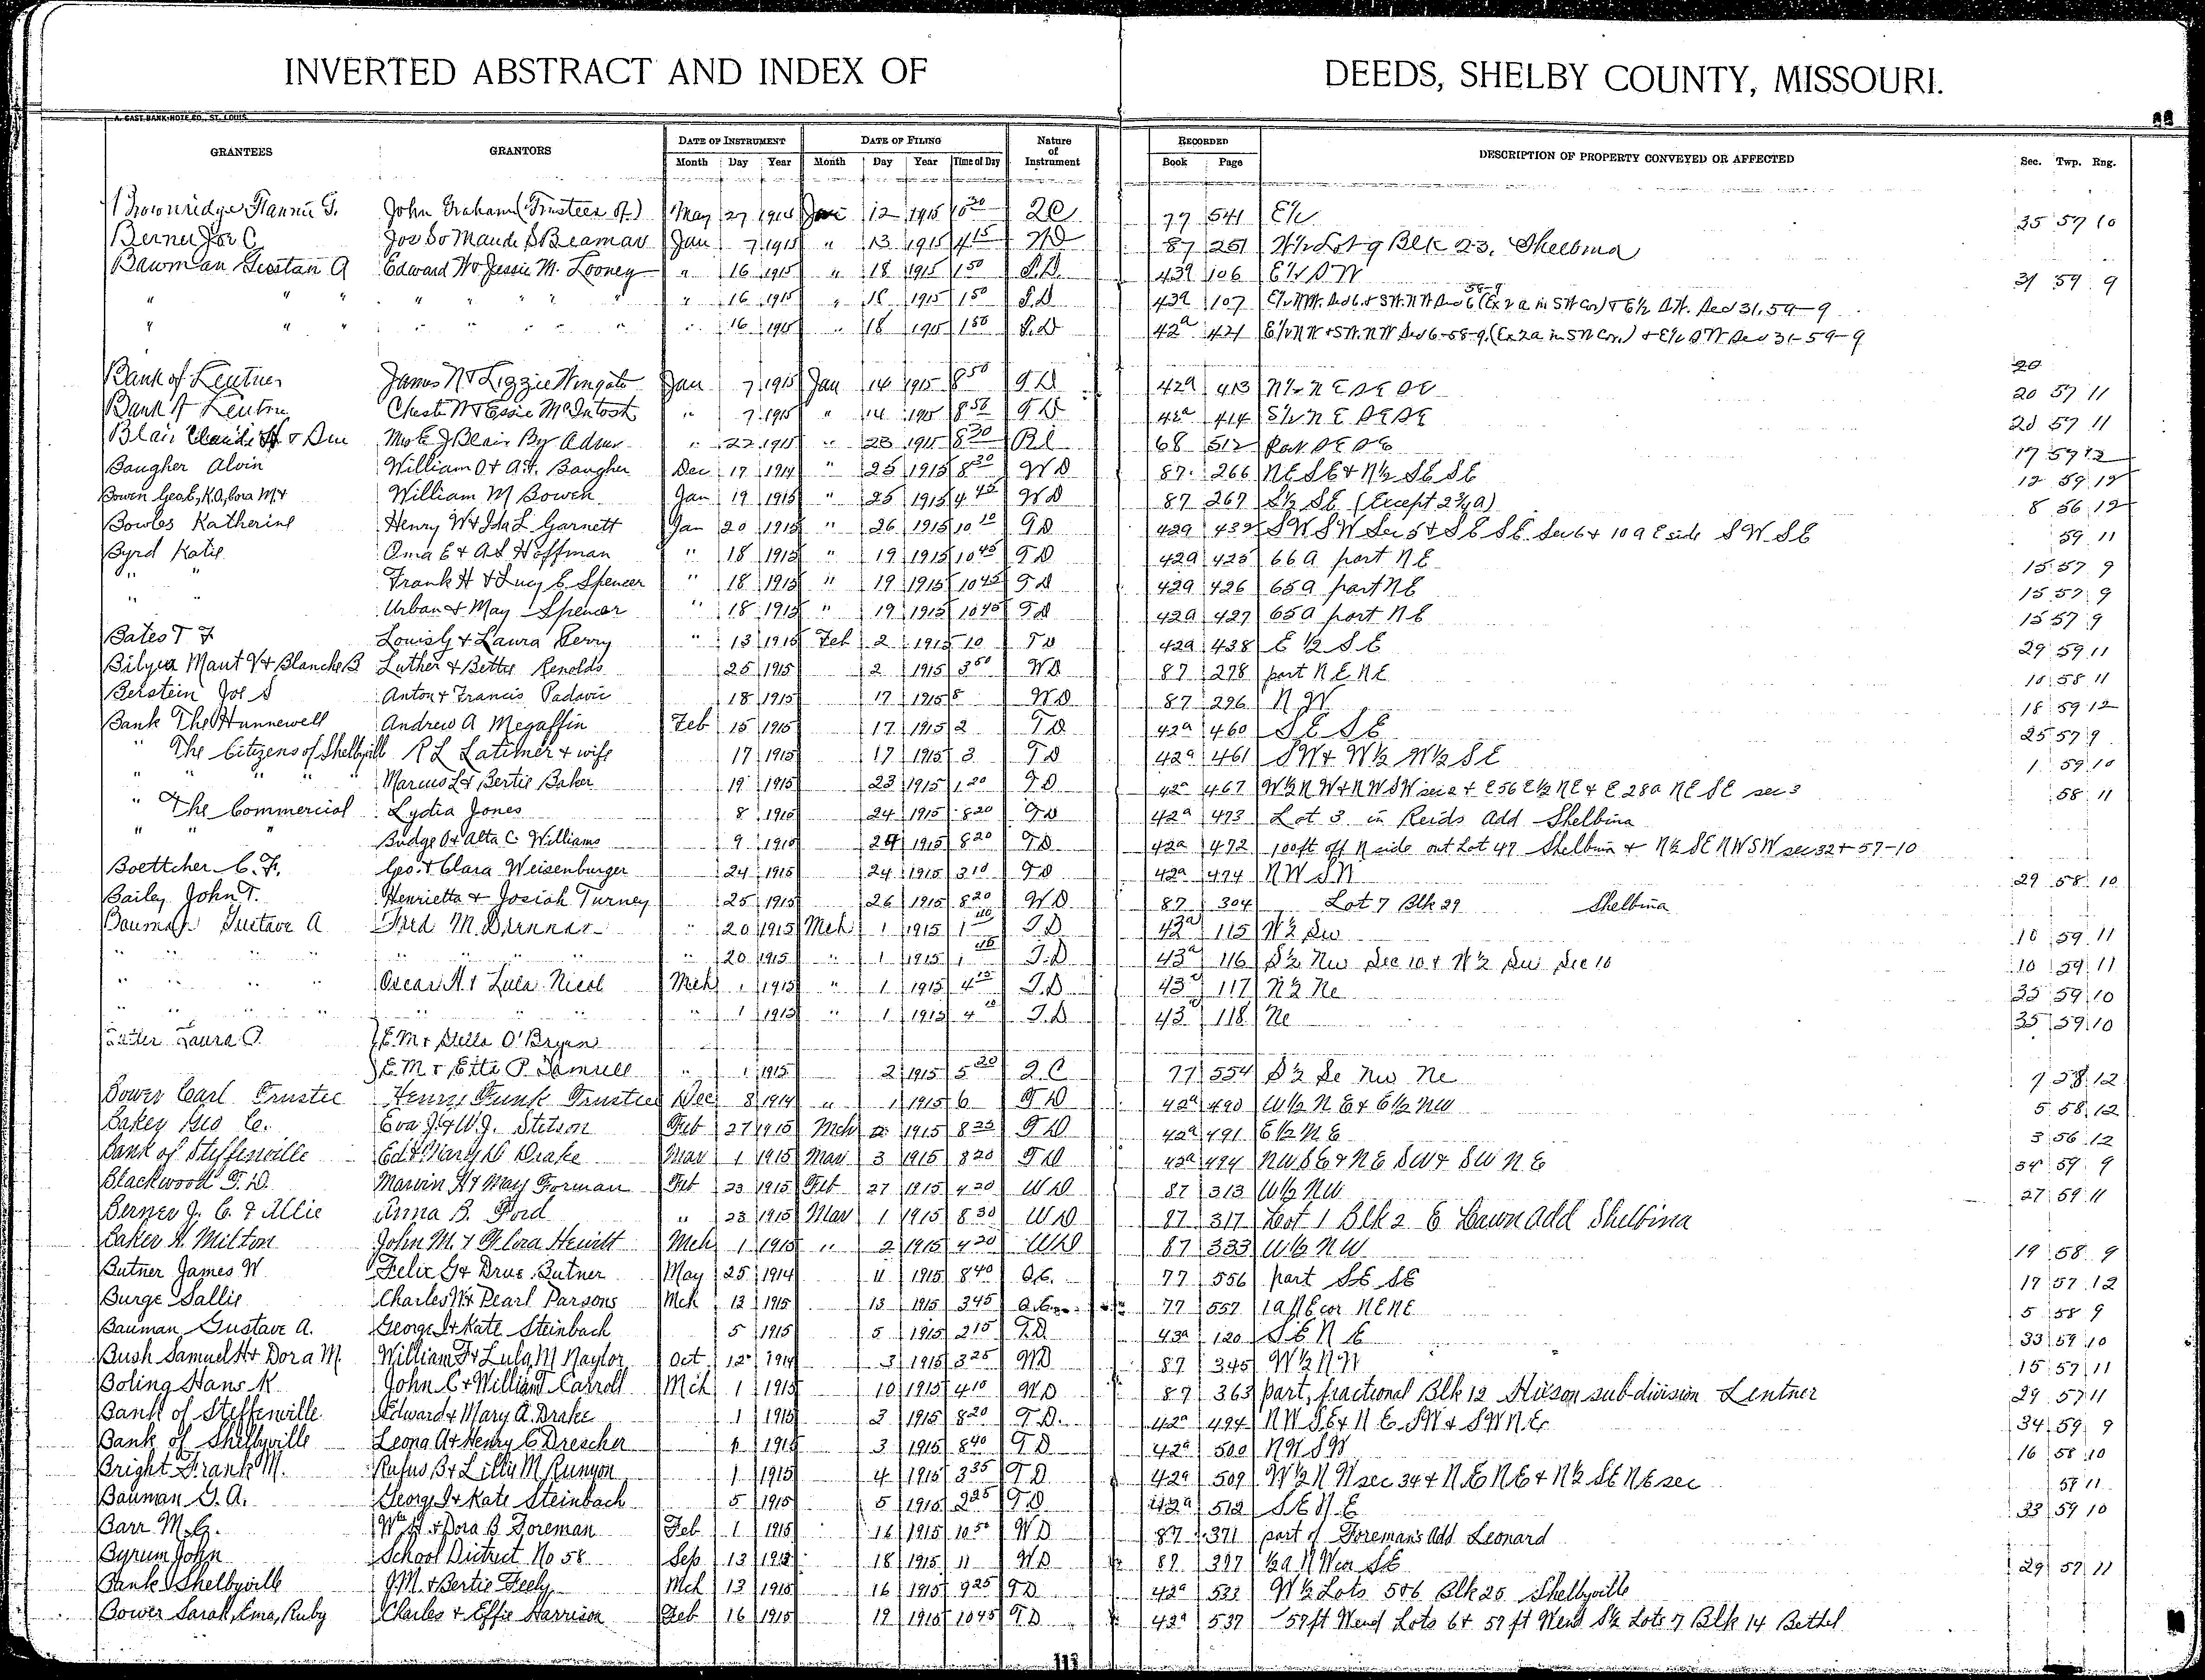 INVERTED ABSTRACT AND INDEX OF DEEDS, SHELBY COUNTY, MISSOURI.
A. GAST BANK NOTE CO., ST. LOUIS
GRANTEES GRANTORS DATE OF INSTRUMENT DATE OF FILING Nature of Instrument RECORDED DESCRIPTION OF PROPERTY CONVEYED OR AFFECTED Sec. Twp. Rng.
Month Day Year Month Day Year Time of Day Book Page
Brownridge Fannie G. John Graham (Trustees of) May 27 1914 12 1915 QC 77 541 E½ 35 57 10
Berner Joe C Jos S & Maude S Beaman Jan 7 1915 " 13 1915 4 15 WD 87 251 Lot 9 Blk 23, Shelbina
Bawman Gustav A Edward W & Jessie M. Looney " 16 1915 " 18 1915 1 50 T.D. 43a 106 E½ SW 31 59 9
" " " " " " " " 16 1915 " 18 1915 1 50 T.D 43a 107 E½ NW. Sec 6 & SW. NW Sec 6 58-9 (Ex 2 a in SW Cor) & E½ SW. Sec 31, 59-9
" " " " " " " " 16 1915 " 18 1915 1 50 T.D 42a 421 E½ NW & SW. NW Sec 6-58-9, (Ex 2 a in SW Cor.) & E½ SW Sec 31-59-9
20
Bank of Lentner James N & Lizzie Wingate Jan 7 1915 Jan 14 1915 8 50 TD 42a 413 N½ NE SE SE 20 57 11
Bank of Lentner Chester N & Essie McIntosh " 7 1915 " 14 1915 8 50 TD 42a 414 S½ NE SE SE 20 57 11
Blair Claude H & Sue J Blair By Admr " 22 1915 " 23 1915 8 30 68 512 Part SE SE 17 59 12
Baugher Alvin William O & A.F. Baugher Dec 17 1914 " 25 1915 8 30 WD 87 266 NE SE & N½ SE SE 12 59 12
Bowen Geo E, K.O, Cora M & William M Bowen Jan 19 1915 " 25 1915 4 45 WD 87 267 S½ SE (Except 2¾ a) 8 56 12
Bowles Katherine Henry W & Ida L Garnett Jan 20 1915 " 26 1915 10 10 TD 42a 432 SW SW Sec 5 & SE SE Sec 6 & 10 a E side SW SE 59 11
Byrd Katie Oma E & A S Hoffman " 18 1915 " 19 1915 10 45 TD 42a 425 66 a part NE 15 57 9
" " Frank H & Lucy E Spencer " 18 1915 " 19 1915 10 45 TD 42a 426 65 a part NE 15 57 9
" " Urban & May Spencer " 18 1915 " 19 1915 10 45 TD 42a 427 65 a part NE 15 57 9
Bates T F Louis G & Laura Perry " 13 1915 Feb 2 1915 10 TD 42a 438 E ½ SE 29 59 11
Bilyea Maut V & Blanche B Luther & Bettie Renolds 25 1915 2 1915 3 50 WD 87 278 part NE NE 10 58 11
Berstein Jos S Anton & Francis Padavic 18 1915 17 1915 8 WD 87 296 NW 18 59 12
Bank The Hunnewell Andrew A Megaffin Feb 15 1915 17 1915 2 TD 42a 460 SE SE 25 57 9
" The Citizens of Shelbyvill R L Latimer & wife 17 1915 17 1915 3 TD 42a 461 SW & W½ W½ SE 1 59 10
" " " " Marcus L & Bertie Baker 19 1915 23 1915 1 20 TD 42a 467 W½ NW & NW SW sec 2 & E 56 E½ NE & E 28a NE SE sec 3 58 11
" The Commercial Lydia Jones 8 1915 24 1915 8 20 TD 42a 473 Lot 3 in Reids Add Shelbina
" " " Budge O & Alta C Williams 9 1915 24 1915 8 20 TD 42a 472 100 ft off N side out Lot 47 Shelbina & N½ SE NW SW sec 32 & 57-10
Boettcher C. F. Geo. & Clara Weisenburger 24 1915 24 1915 3 10 TD 42a 474 NW SW 29 58 10
Bailey John T. Henrietta & Josiah Turney 25 1915 26 1915 8 20 WD 87 304 Lot 7 Blk 29 Shelbina
Bauman Gustave A Fred M. " 20 1915 Mch 1 1915 1 40 T.D 43a 115 N½ Sw 10 59 11
" " " " " " 20 1915 " 1 1915 1 T.D 43a 116 S½ Nw Sec 10 & N½ Sw Sec 10 10 59 11
" " " Oscar H & Lula Nicol Mch 1 1915 " 1 1915 4 15 T.D 43a 117 N½ Ne 35 59 10
" " " " " " " 1 1915 " 1 1915 4 T.D 43a 118 Ne 35 59 10
Laura O. E. M & Stella O'Bryen
E. M & Etta P. Samuel " 1 1915 2 1915 5 20 Q.C 77 554 S½ Se Nw Ne 9 58 12
Bower Carl Trustee Henry Funk Trustee Dec 8 1914 " 1 1915 6 TD 42a 490 W½ NE & E½ NW 5 58 12
Bakey Geo C. Eva J. & W.J. Stetson Feb 27 1915 Mch 2 1915 8 25 TD 42a 491 E½ NE 3 56 12
Bank of Steffenville Ed & Mary A Drake Mar 1 1915 Mar 3 1915 8 20 TD 42a 494 NW SE & NE SW & SW NE 34 59 9
Blackwood F. D. Marvin H & May Forman Feb 23 1915 Feb 27 1915 4 20 WD 87 313 W½ NW 27 59 11
Berner J. C. & Allie Anna B. Ford " 23 1915 Mar 1 1915 8 30 WD 87 317 Lot 1 Blk 2 E Lawn Add Shelbina
Baker H. Milton John M. & Flora Hewitt Mch 1 1915 " 2 1915 4 20 WD 87 333 W½ NW 19 58 9
Butner James W Felix G & Drue Butner May 25 1914 11 1915 8 40 Q.C. 77 556 part SE SE 17 57 12
Burge Sallie Charles W & Pearl Parsons Mch 13 1915 13 1915 3 45 Q.C. 77 557 1a NE cor NE NE 5 58 9
Bauman Gustave A. George I & Kate Steinbach 5 1915 5 1915 2 15 T.D. 43a 120 SE NE 33 59 10
Bush Samuel H & Dora M. William F & Lula M Naylor Oct 12 1914 3 1915 3 25 WD 87 345 W½ NW 15 57 11
Boling Hans K John C & William T Carroll Mch 1 1915 10 1915 4 10 WD 87 363 part, fractional Blk 12 Hixson sub-division Lentner 29 57 11
Bank of Steffenville Edward & Mary A. Drake 1 1915 3 1915 8 20 T.D. 42a 494 NW SE & NE SW & SW NE 34 59 9
Bank of Shelbyville Leona A & Henry C Drescher 1 1915 3 1915 8 40 TD 42a 500 NW SW 16 58 10
Bright Frank M. Rufus B & Lilly M Runyon 1 1915 4 1915 3 35 TD 42a 509 W½ NW sec 34 & NE NE & N½ SE NE sec 59 11
Bauman G. A. George I & Kate Steinbach 5 1915 5 1915 2 25 TD 42a 512 SE NE 33 59 10
Barr M. G. Wm H. & Dora B Foreman Feb 1 1915 16 1915 10 50 WD 87 371 part of Foreman's Add Leonard
Byrum John School District No 58 Sep 13 1912 18 1915 11 WD 87 397 ½ a NW cor SE 29 57 11
Bank Shelbyville J. M. & Bertie Feely Mch 13 1915 16 1915 9 25 TD 42a 533 W½ Lots 5 & 6 Blk 25 Shelbyville
Bower Sarah, Ema, Ruby Charles & Effie Harrison Feb 16 1915 19 1915 10 45 TD 42a 537 57 ft W end Lots 6 & 57 ft W end S½ Lots 7 Blk 14 Bethel
113